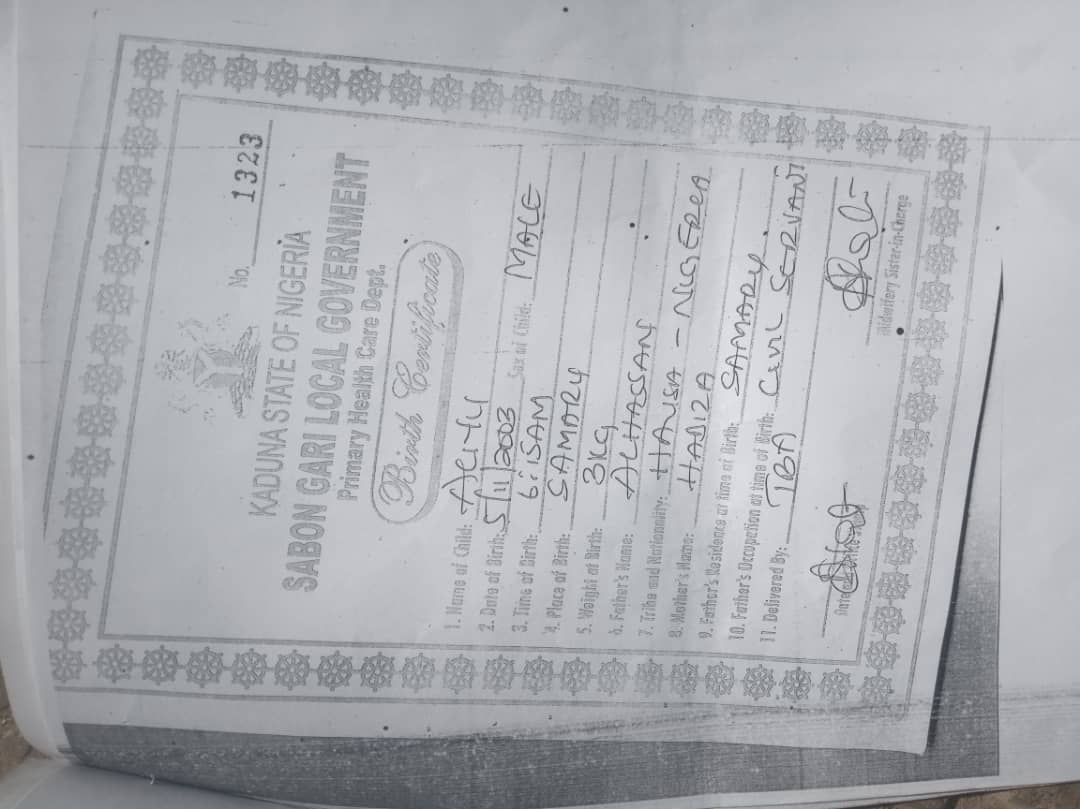 No. 1323
KADUNA STATE OF NIGERIA
SABON GARI LOCAL GOVERNMENT
Primary Health Care Dept.
Birth Certificate
1. Name of Child: ALIYU
2. Date of Birth: 5/11/2003 Sex of Child: MALE
3. Time of Birth: 6:15AM
4. Place of Birth: SAMARU
5. Weight at Birth: 3KG
6. Father's Name: ALHASSAN
7. Tribe and Nationality: HAUSA - NIGERIA
8. Mother's Name: HADIZA
9. Father's Residence at time of Birth: SAMARU
10. Father's Occupation at time of Birth: CIVIL SERVANT
11. Delivered By: TBA
Midwifery Sister-in-Charge